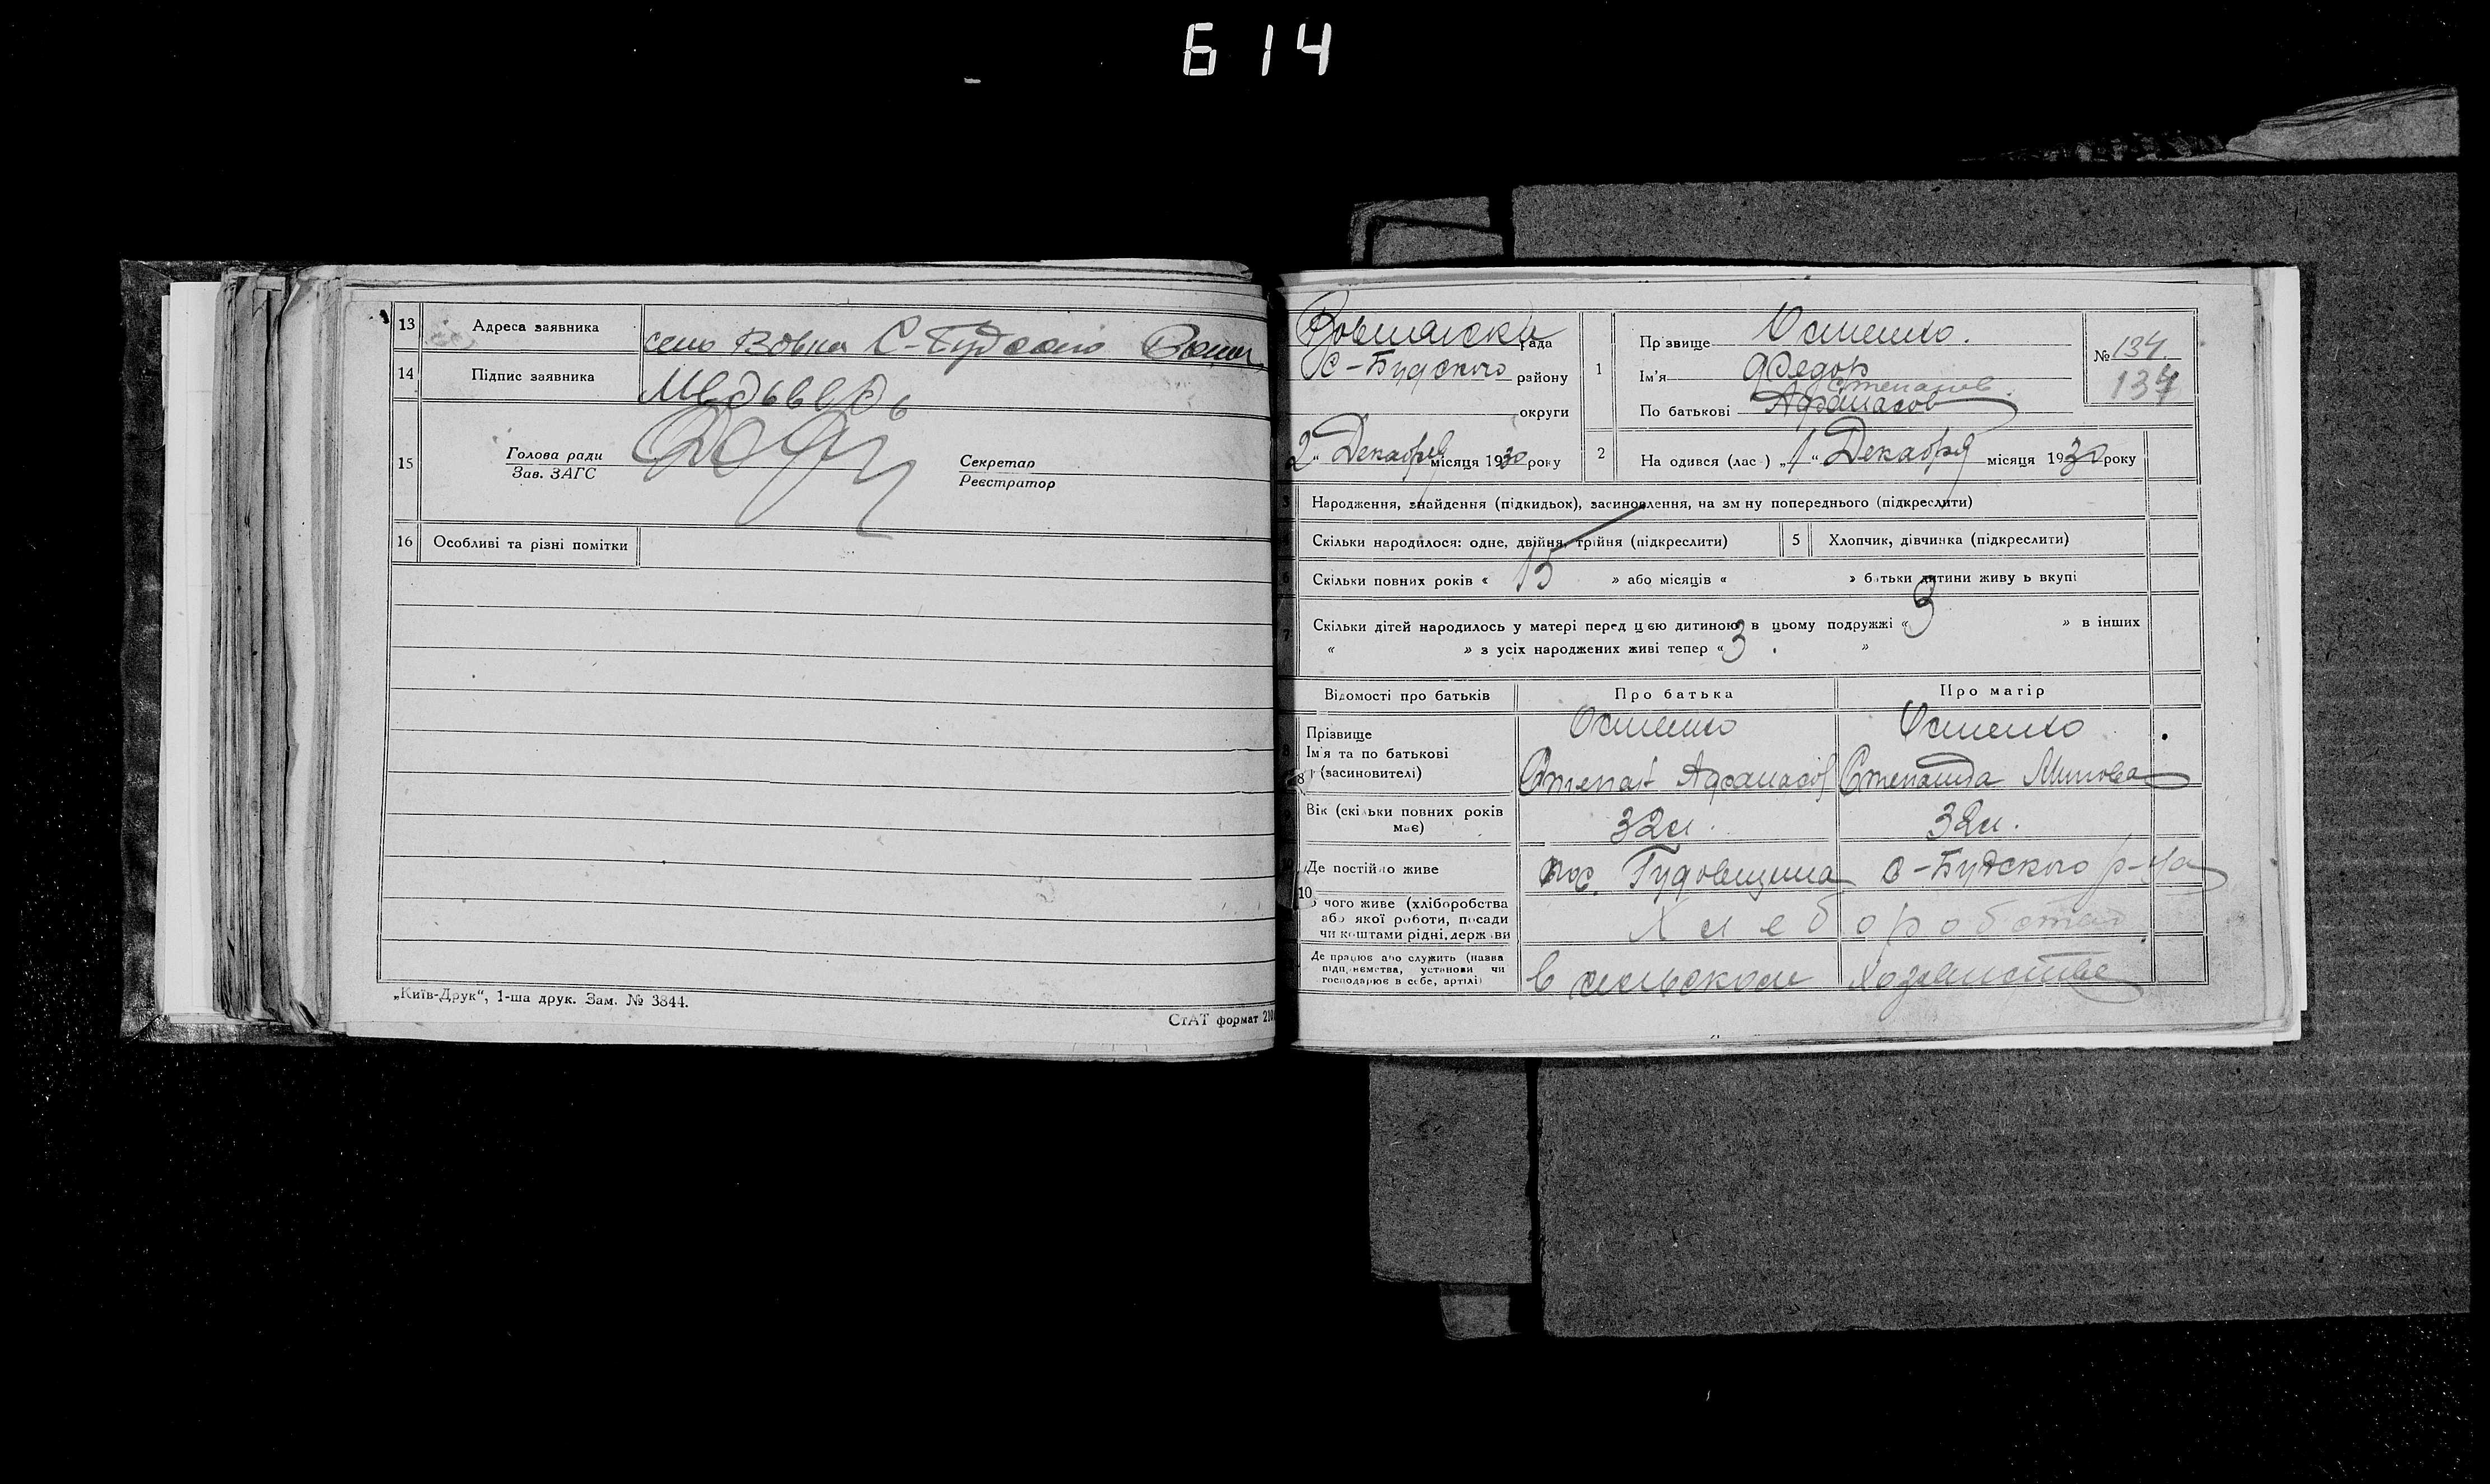 614
13 Адреса заявника село Вовна С-Будского
14 Підпис заявника Медьведь
15 Голова ради
Зав. ЗАГС
Секретар
Реєстратор
16 Особливі та різні помітки
„Київ-Друк“, 1-ша друк. Зам. № 3844.
СтАТ формат 210
рада
С-Будского району
округи
2 „ Декабря місяця 1930 року
1 Пр звище
Ім'я Федор
Степанов
По батькові Афанасов
№ 134
134
2 На одився (лас ) „ 1 “ Декабря місяця 1930 року
3 Народження, знайдення (підкидьох), засиновлення, на зм ну попереднього (підкреслити)
Скільки народилося: одне, двійня, трійня (підкреслити)
5 Хлопчик, дівчинка (підкреслити)
6 Скільки повних років « 15 » або місяців « » батьки дитини живу ь вкупі
7 Скільки дітей народилось у матері перед цією дитиною в цьому подружжі « 3 » в інших
« » з усіх народжених живі тепер « 3 . »
Відомості про батьків Про батька Про матір
8 Прізвище
Ім'я та по батькові
(засновителі)
Степан Афанасов Степанида
Вік (скільки повних років має) 32 л. 32 л.
Де постійно живе пос. Гудовщина С-Будского р-на
10 чого живе (хліборобства
або якої роботи, посади
чи коштами рідні, держ ви
Хлеборобством
Де працює або служить (назва
підприємства, установи чи
господарює в себе, артілі)
в сельском хозяистве